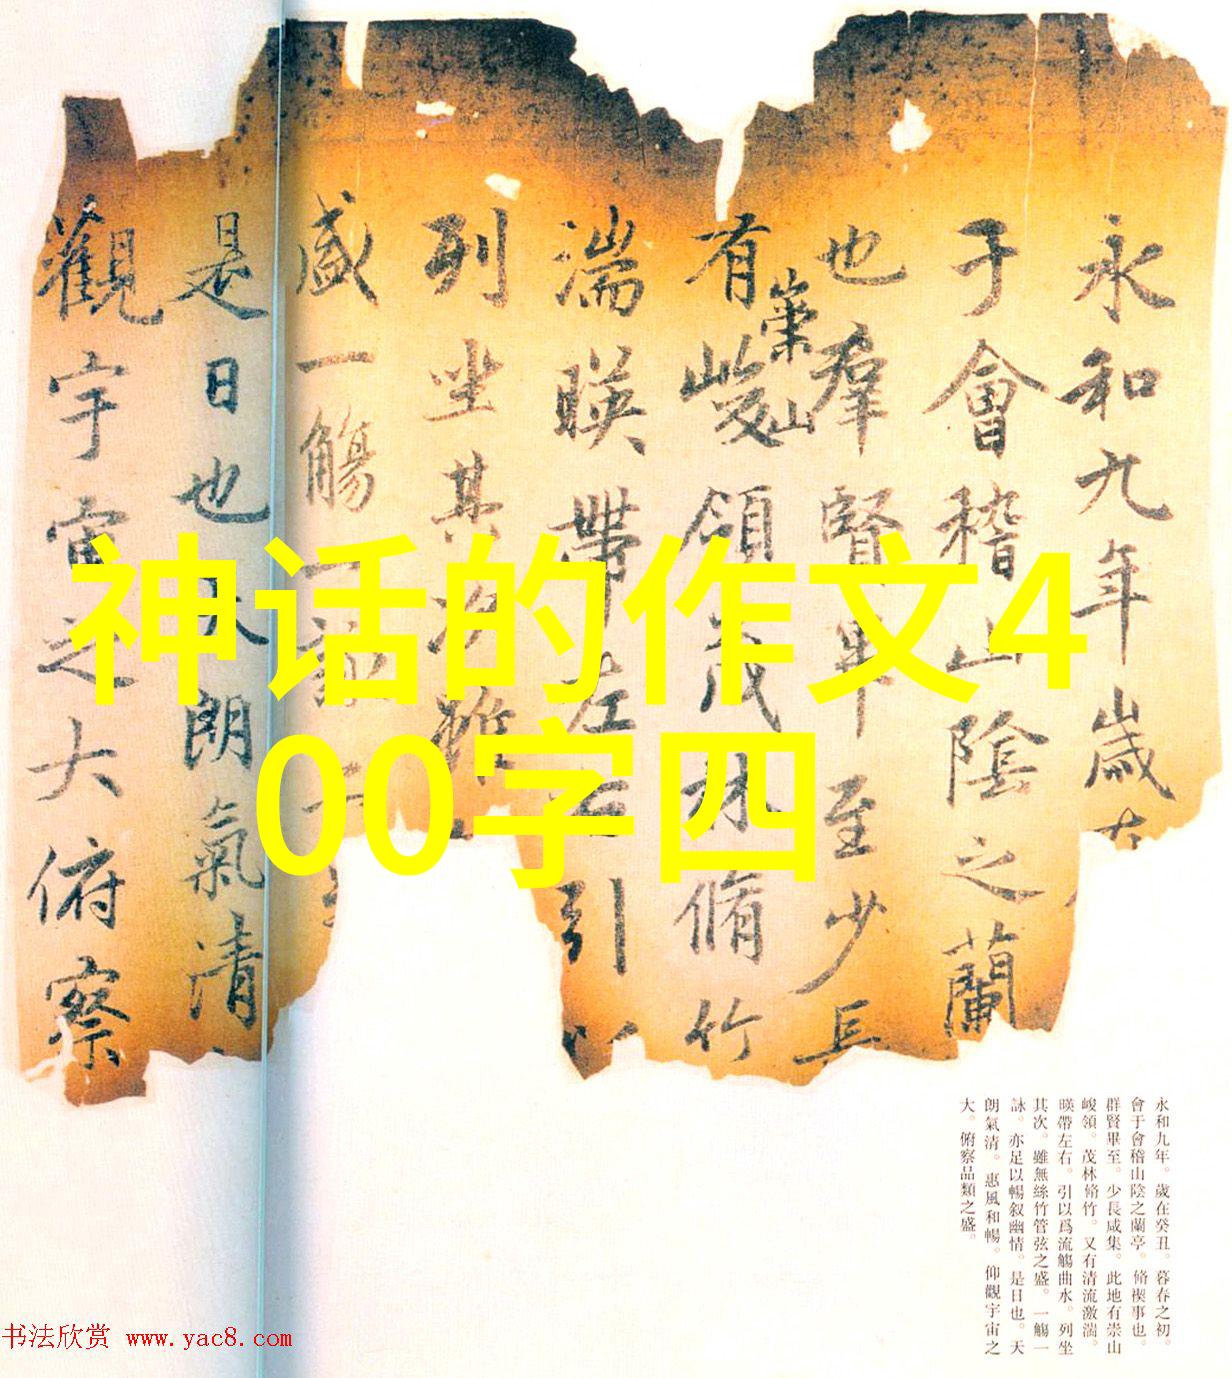 永和九年歲在
于會稽山陰之蘭
也羣賢畢至少長
有崇山峻領茂林脩竹
湍暎帶左右引以
列坐其次雖
盛一觴一詠
是日也天朗氣清
觀宇宙之大俯察
神话的作文4
00字四
永和九年。歲在癸丑。暮春之初。
會于會稽山陰之蘭亭。脩禊事也。
群賢畢至。少長咸集。此地有崇山
峻領。茂林脩竹。又有清流激湍。
暎帶左右。引以爲流觴曲水。列坐
其次。雖無絲竹管弦之盛。一觴一
詠。亦足以暢叙幽情。是日也。天
朗氣清。惠風和暢。仰觀宇宙之
大。俯察品類之盛。
书法欣赏 www.yac8.com